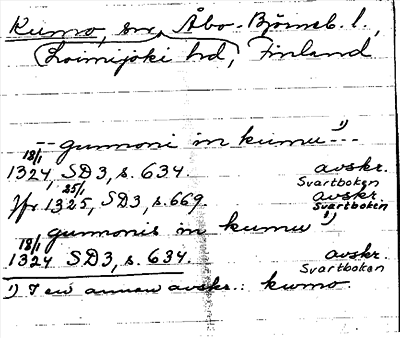 Kumo, sn, Åbo-Björneb. l.,
(Loimijoki hd), Finland
-- gummoni in kumu 1) --
18/1 1324, SD3, s. 634. avskr. Svartboken
Jfr 25/1 1325, SD3, s. 669. avskr. Svartboken
gummonis in kumu 1)
18/1 1324 SD3, s. 634. avskr. Svartboken
1) I en annan avskr.: kwmo.